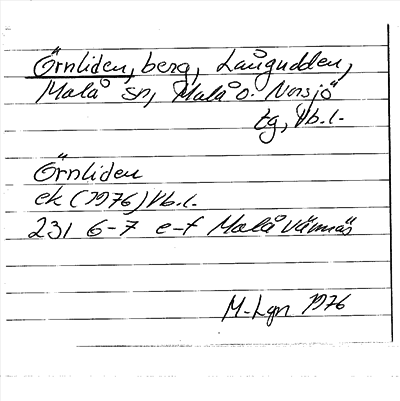 Örnliden, berg, Långudden,
Malå sn, Malå o. Norsjö
tg, Vb.l.
Örnliden
ek (1976) Vb.l.
231 6-7 e-f Malåvännäs
M-Lgn 1976